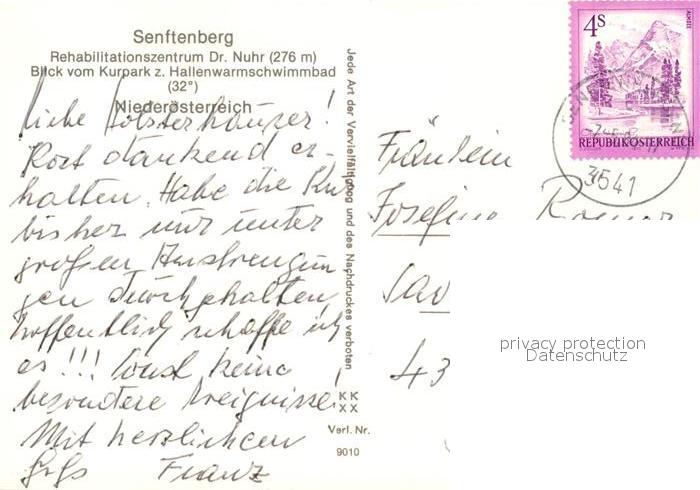 Senftenberg
Rehabilitationszentrum Dr. Nuhr (276 m)
Blick vom Kurpark z. Hallenwarmschwimmbad
(32°)
Niederösterreich
Liebe !
Post dankend er-
halten. Habe die Kur
bisher nur unter
großen Anstrengun
gen durchgehalten,
hoffentlich schaffe ich
es!!! Sonst keine
besondere Ereignisse!
Mit herzlichen
Grüß Franz
Jede Art der Vervielfältigung und des Nachdruckes verboten
KK
XX
Verl. Nr.
9010
4S
ALMSEE
REPUBLIK ÖSTERREICH
3541
Fräulein
Josefine
43
privacy protection
Datenschutz